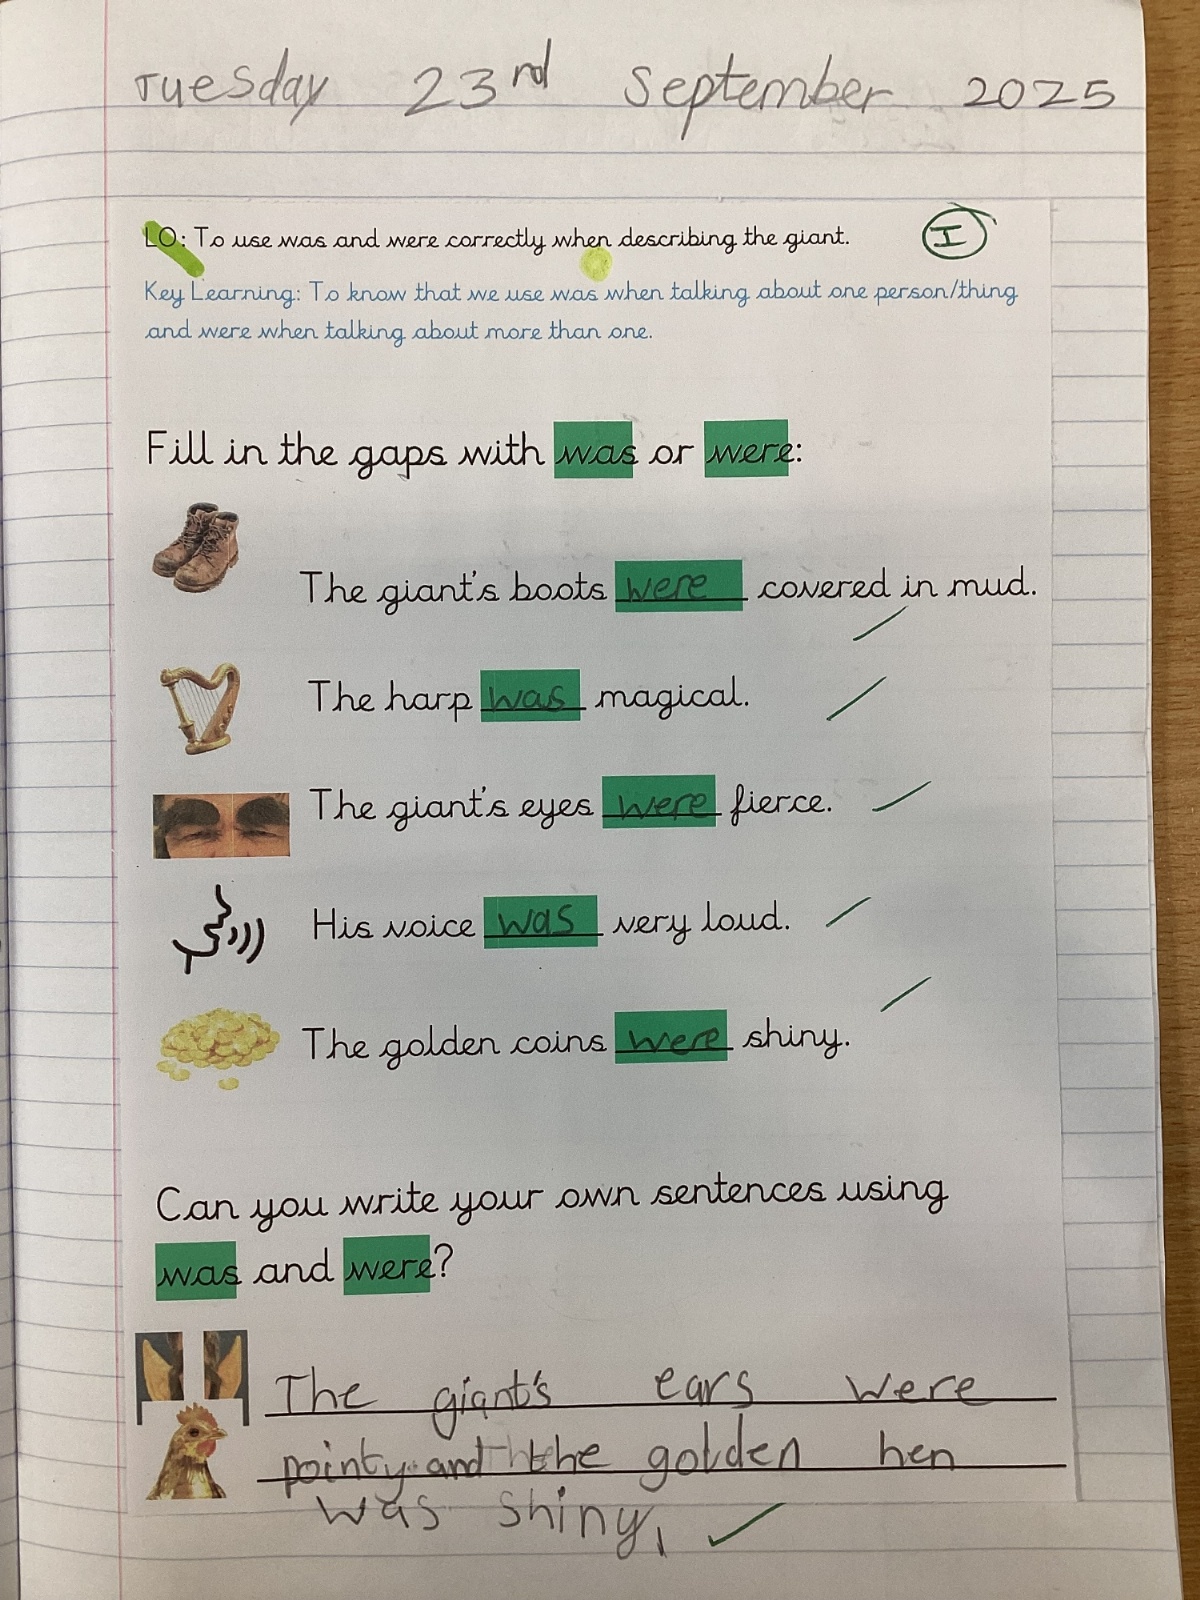 Tuesday 23rd September 2025
LO: To use was and were correctly when describing the giant. I
Key Learning: To know that we use was when talking about one person/thing
and were when talking about more than one.
Fill in the gaps with was or were:
The giant's boots were covered in mud.
The harp was magical.
The giant's eyes were fierce.
His voice was very loud.
The golden coins were shiny.
Can you write your own sentences using
was and were?
The giant's ears were
pointy and the golden hen
was shiny,